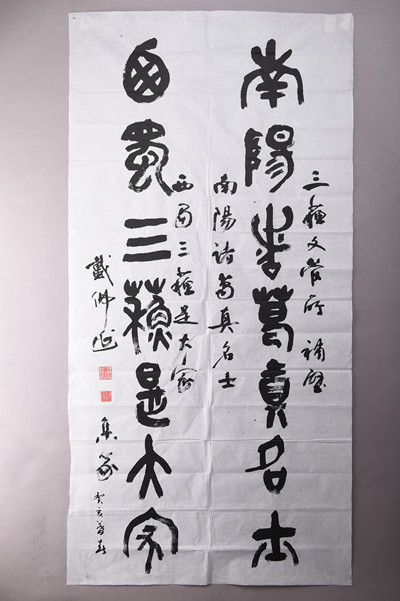 三蘇文管所補壁
南陽諸葛真名士
南陽諸葛真名士
西蜀三蘇是大家
西蜀三蘇是大家
戴佛延
集篆 癸亥暮春